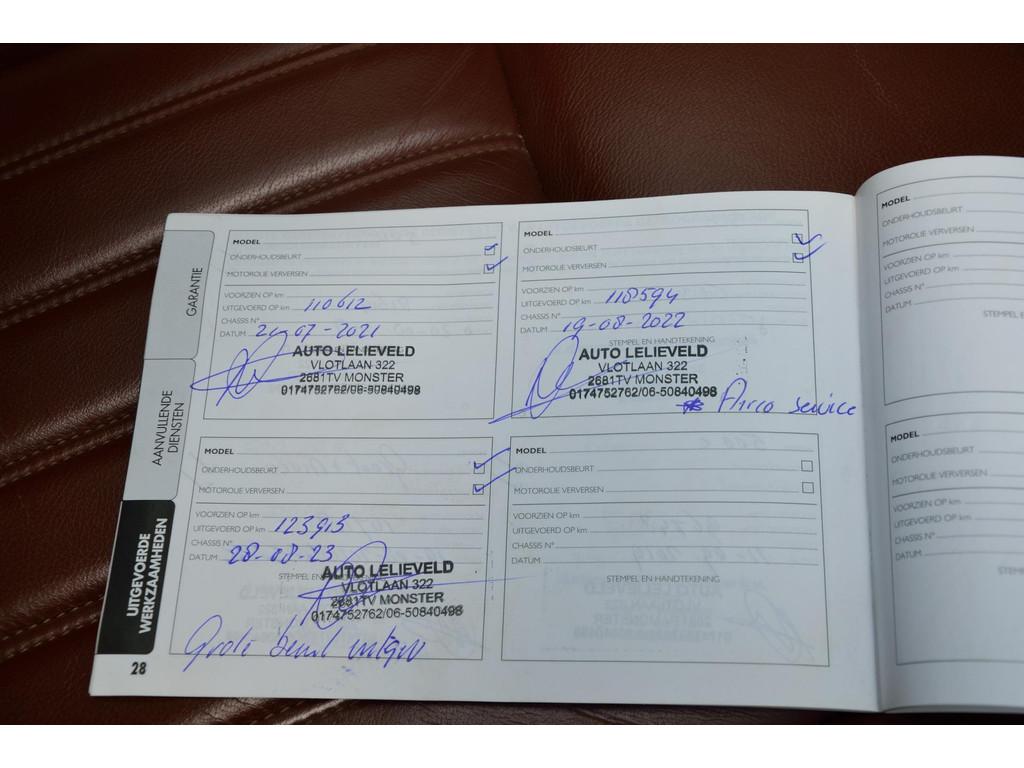 GARANTIE
AANVULLENDE
DIENSTEN
UITGEVOERDE
WERKZAAMHEDEN
28
MODEL
ONDERHOUDSBEURT
MOTOROLIE VERVERSEN
VOORZIEN OP km
UITGEVOERD OP km 110612
CHASSIS N°
DATUM 21-07-2021
AUTO LELIEVELD
VLOTLAAN 322
2681TV MONSTER
0174752762/06-50840498
MODEL
ONDERHOUDSBEURT
MOTOROLIE VERVERSEN
VOORZIEN OP km
UITGEVOERD OP km 118594
CHASSIS N°
DATUM 19-08-2022
STEMPEL EN HANDTEKENING
AUTO LELIEVELD
VLOTLAAN 322
2681TV MONSTER
0174752762/06-50840498
* Airco service
MODEL
ONDERHOUDSBEURT
MOTOROLIE VERVERSEN
VOORZIEN OP km
UITGEVOERD OP km 123913
CHASSIS N°
DATUM 28-08-23
STEMPEL EN
AUTO LELIEVELD
VLOTLAAN 322
2681TV MONSTER
0174752762/06-50840498
Grote beurt
MODEL
ONDERHOUDSBEURT
MOTOROLIE VERVERSEN
VOORZIEN OP km
UITGEVOERD OP km
CHASSIS N°
DATUM
STEMPEL EN HANDTEKENING
MODEL
ONDERHOUDSBEURT
MOTOROLIE VERVERSEN
VOORZIEN OP km
UITGEVOERD OP km
CHASSIS N°
DATUM
MODEL
ONDERHOUDSBEURT
MOTOROLIE VERVERSEN
VOORZIEN OP km
UITGEVOERD OP km
CHASSIS N°
DATUM